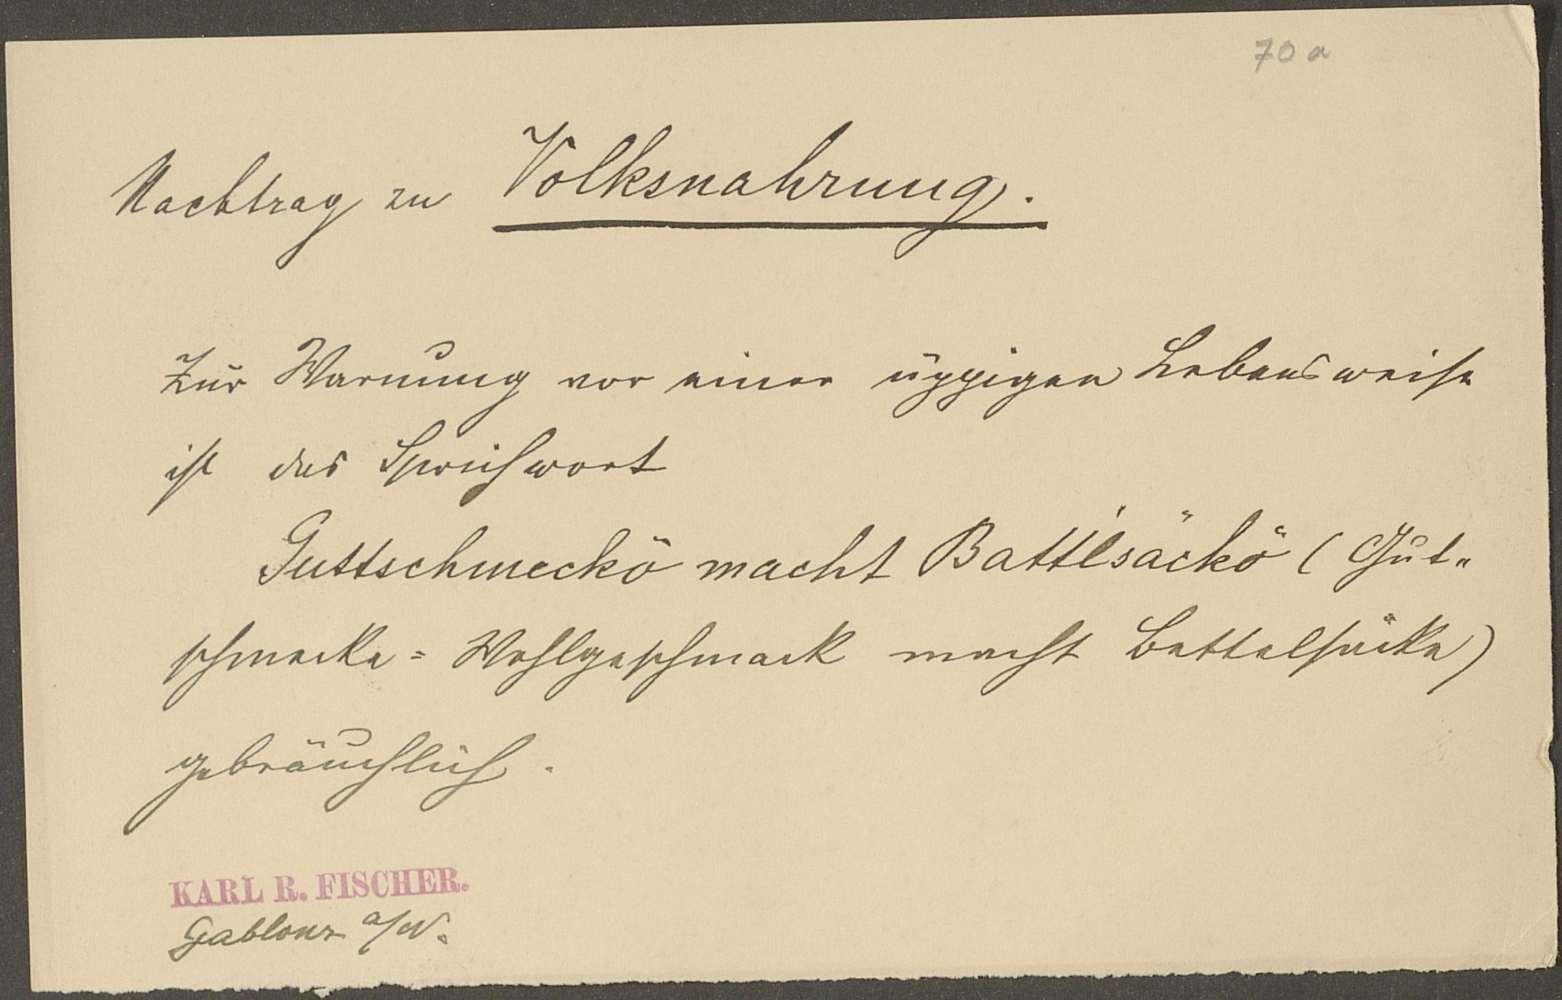 70 a
Nachtrag zu Volksnahrung.
Zur Warnung vor einer üppigen Lebensweise
ist das Sprichwort
Guttschmeckö macht Battlsäckö (Gut-
schmecke = Wohlgeschmack macht Bettelsäcke)
gebräuchlich.
KARL R. FISCHER.
Gablonz a/N.